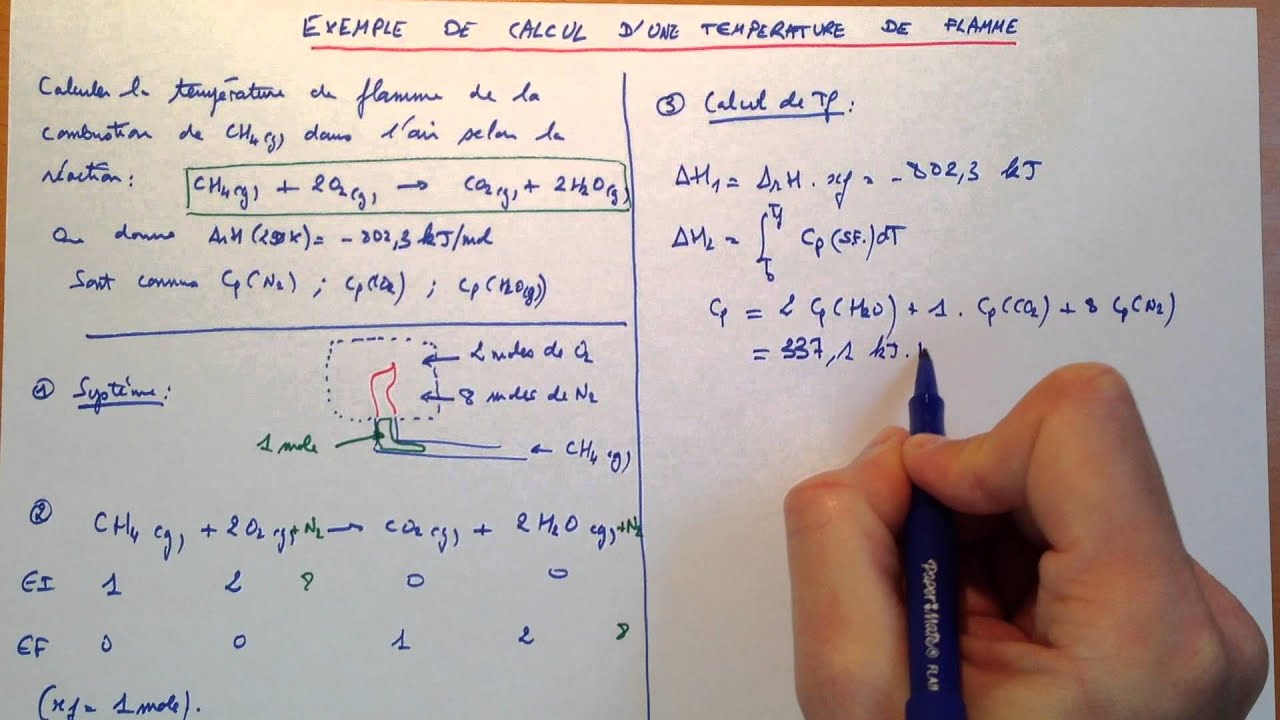 EXEMPLE DE CALCUL D'UNE TEMPERATURE DE FLAMME
Calculer la température de flamme de la
combustion de CH4(g) dans l'air selon la
réaction: CH4(g) + 2O2(g) → CO2(g) + 2H2O(g)
On donne ΔrH(298K) = -802,3 kJ/mol
Sont connus Cp(N2) ; Cp(CO2) ; Cp(H2O(g))
① Système:
2 moles de O2
8 moles de N2
1 mole
← CH4(g)
② CH4(g) + 2O2(g) + N2 → CO2(g) + 2H2O(g) + N2
EI 1 2 8 0 0
EF 0 0 1 2 8
(xf = 1 mole).
③ Calcul de Tf:
ΔH1 = ΔrH . xf = -802,3 kJ
ΔH2 = ∫T0Tf Cp(S.F.)dT
Cp = 2 Cp(H2O) + 1 . Cp(CO2) + 8 Cp(N2)
= 337,1 kJ.
PaperMate FLAIR